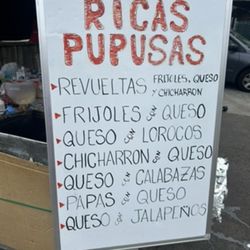 RICAS
PUPUSAS
REVUELTAS FRIJOLES, QUESO
Y CHICHARRON
FRIJOLES CON QUESO
QUESO CON LOROCOS
CHICHARRON CON QUESO
QUESO CON CALABAZAS
PAPAS CON QUESO
QUESO CON JALAPEÑOS